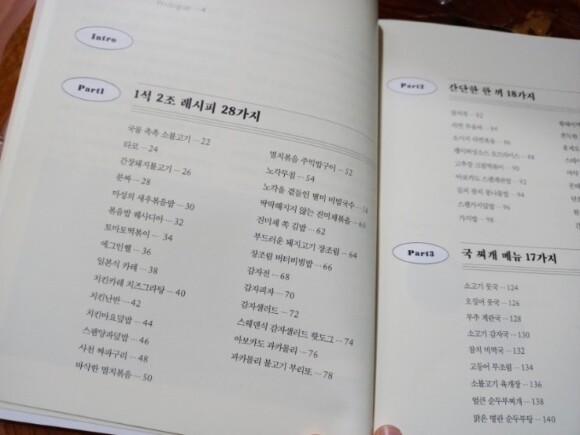 Prologue — 4
Intro
Part1
1석 2조 레시피 28가지
국물 촉촉 소불고기 — 22
타코 — 24
간장돼지불고기 — 26
분짜 — 28
마성의 새우볶음밥 — 30
볶음밥 퀘사디아 — 32
토마토떡볶이 — 34
에그인헬 — 36
일본식 카레 — 38
치킨카레 치즈그라탕 — 40
치킨난반 — 42
치킨마요덮밥 — 44
스팸양파덮밥 — 46
사천 짜파구리 — 48
바삭한 멸치볶음 — 50
멸치볶음 주먹밥구이 — 52
노각무침 — 54
노각을 곁들인 별미 비빔국수
딱딱해지지 않는 진미채볶음
진미채 쏙 김밥 — 62
부드러운 돼지고기 장조림 — 64
장조림 버터비빔밥 — 66
감자전 — 68
감자피자 — 70
감자샐러드 — 72
스웨덴식 감자샐러드 핫도그 — 74
아보카도 과카몰리 — 76
과카몰리 불고기 부리또 — 78
Part2
간단한 한 끼 18가지
가지밥 — 98
Part3
국 찌개 메뉴 17가지
소고기 뭇국 — 124
오징어 뭇국 — 126
부추 계란국 — 128
소고기 감자국 — 130
참치 미역국 — 132
고등어 무조림 — 134
소불고기 육개장 — 136
얼큰 순두부찌개 — 138
맑은 명란 순두부탕 — 140